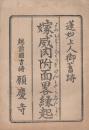 蓮如上人御舊跡
嫁威肉附面畧縁起
越前國吉崎
願慶寺